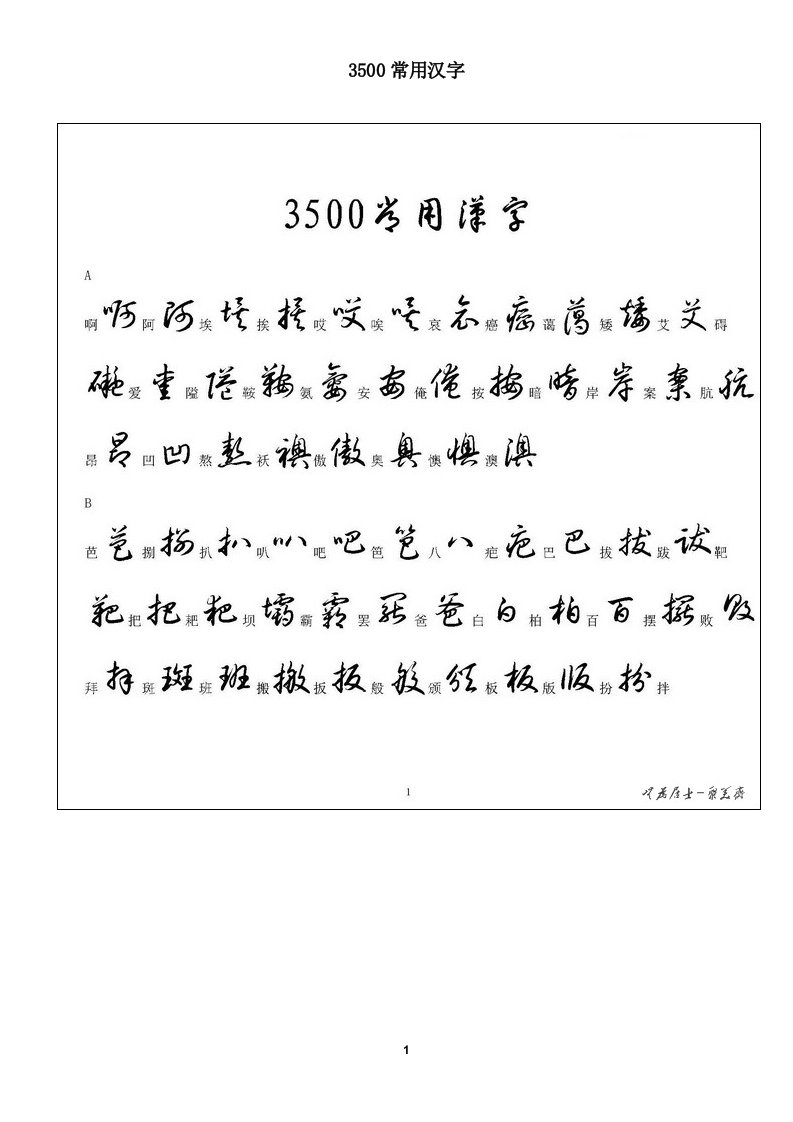 3500 常用汉字
3500常用漢字
A
啊啊阿阿埃埃挨挨哎哎唉唉哀哀癌癌蔼藹矮矮艾艾碍
礙爱愛隘隘鞍鞍氨氨安安俺俺按按暗暗岸岸案案肮肮
昂昂凹凹熬熬袄襖傲傲奥奧懊懊澳澳
B
芭芭捌捌扒扒叭叭吧吧笆笆八八疤疤巴巴拔拔跋跋靶
靶把把耙耙坝壩霸霸罢罷爸爸白白柏柏百百摆擺败敗
拜拜斑斑班班搬搬扳扳般般颁頒板板版版扮扮拌
1
1